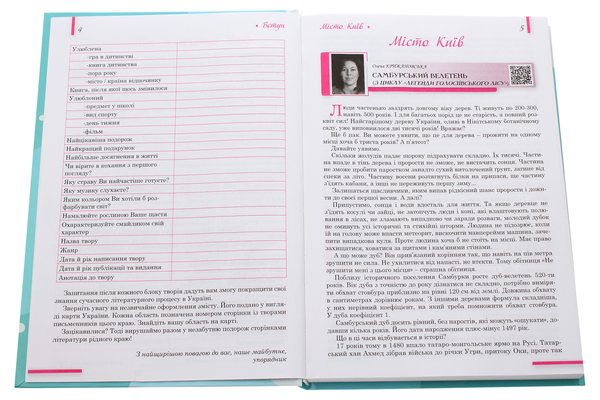 4 • Вступ
Улюблена
-гра в дитинстві
-книга дитинства
-пора року
-місто / країна відпочинку
Книга, після якої щось змінилося
Улюблений
-предмет у школі
-вид спорту
-день тижня
-фільм
Найцікавіша подорож
Найкращий подарунок
Найбільше досягнення в житті
Чи вірите в кохання з першого
погляду?
Яку страву Ви найчастіше готуєте?
Яку музику слухаєте?
Яким кольором Ви хотіли б роз-
фарбувати світ?
Намалюйте рослиною Ваше щастя
Охарактеризуйте смайликом свій
характер
Назва твору
Жанр
Дата й рік написання твору
Дата й рік публікації та видання
Анотація до твору
Запитання після кожного блоку творів дадуть вам змогу покращити свої
знання сучасного літературного процесу в Україні.
Зверніть увагу на незвичайне оформлення змісту. Його подано у вигля-
ді карти України. Кожна область позначена номером сторінки із творами
письменників цього краю. Знайдіть вашу область на карті.
Зацікавилися? Тоді вирушаймо разом у незабутню подорож сторінками
літератури рідного краю!
З найщирішою повагою до вас, наше майбутнє,
упорядник
Місто Київ • 5
Місто Київ
Олена КРИЖАНОВСЬКА
САМБУРСЬКИЙ ВЕЛЕТЕНЬ
(З ЦИКЛУ «ЛЕГЕНДИ ГОЛОСІЇВСЬКОГО ЛІСУ»)
Люди частенько заздрять довгому віку дерев. Ті живуть по 200-300,
навіть 500 років. І для багатьох порід це не старість, а повний роз-
квіт сил! Найстарішому дереву України, оливі в Нікітському ботанічному
саду, уже виповнилося дві тисячі років! Вражає?
Ще б пак. Ви можете уявити, що це для дерева – прожити на одному
місці хоча б триста років? А п'ятсот?
Давайте уявимо.
Скільки жолудів падає щороку підрахувати складно. Їх тисячі. Части-
на впаде в тінь дерева і прорости не зможе, не вистачить сонця. Частина
не зможе пробити паростком занадто сухий витолочений ґрунт, загине від
спеки за літо. Частину восени розтягнуть білки на припаси, ще частину
з'їдять кабани, а інші не переживуть першу зиму...
Залишаться щасливчики, яким випав рідкісний шанс прорости і дожи-
ти до своєї першої весни. А далі?
Припустимо, сонця і води вдосталь для життя. Та якщо деревце не
з'їдять косулі чи зайці, не затопчуть люди і коні, які влаштовують полю-
вання в лісах, не зламають випадково чи заради розваги, молодий дубок
не оминуть усі історичні та стихійні шторми. Людина не підозрює, коли
їй на голову може впасти метеорит, вискочити навперейми машина, заче-
пити випадкова куля. Проте людина хоча б не стоїть на місці. Має право
захищатися, ховатися за щитами і кам'яними стінами.
А що може дуб? Він прив'язаний корінням так, що навіть на пів метра
зрушити не сила. Не ухилитися від напасті, не втекти. Тому обітниця «Не
зрушити мені з цього місця» – страшна обітниця.
Поблизу історичного поселення Самбурки росте дуб-велетень 520-ти
років. Вік дуба з точністю до року дізнатися не складно, потрібно виміря-
ти обхват стовбура приблизно на рівні 120 см від землі. Довжина обхвату
в сантиметрах дорівнює рокам. З іншими деревами формула складніша,
у них нерівний коефіцієнт, на який треба помножити обхват стовбура.
У дуба коефіцієнт 1.
Самбурський дуб досить рівний, без наростів, які можуть «пошукати», до-
давши кілька років. Його дата народження плюс-мінус 1497 рік.
Що в ці часи відбувається в історії?
17 років тому в 1480 впало татаро-монгольське ярмо на Русі. Татар-
ський хан Ахмед зібрав війська до річки Угри, притоку Оки, проте так